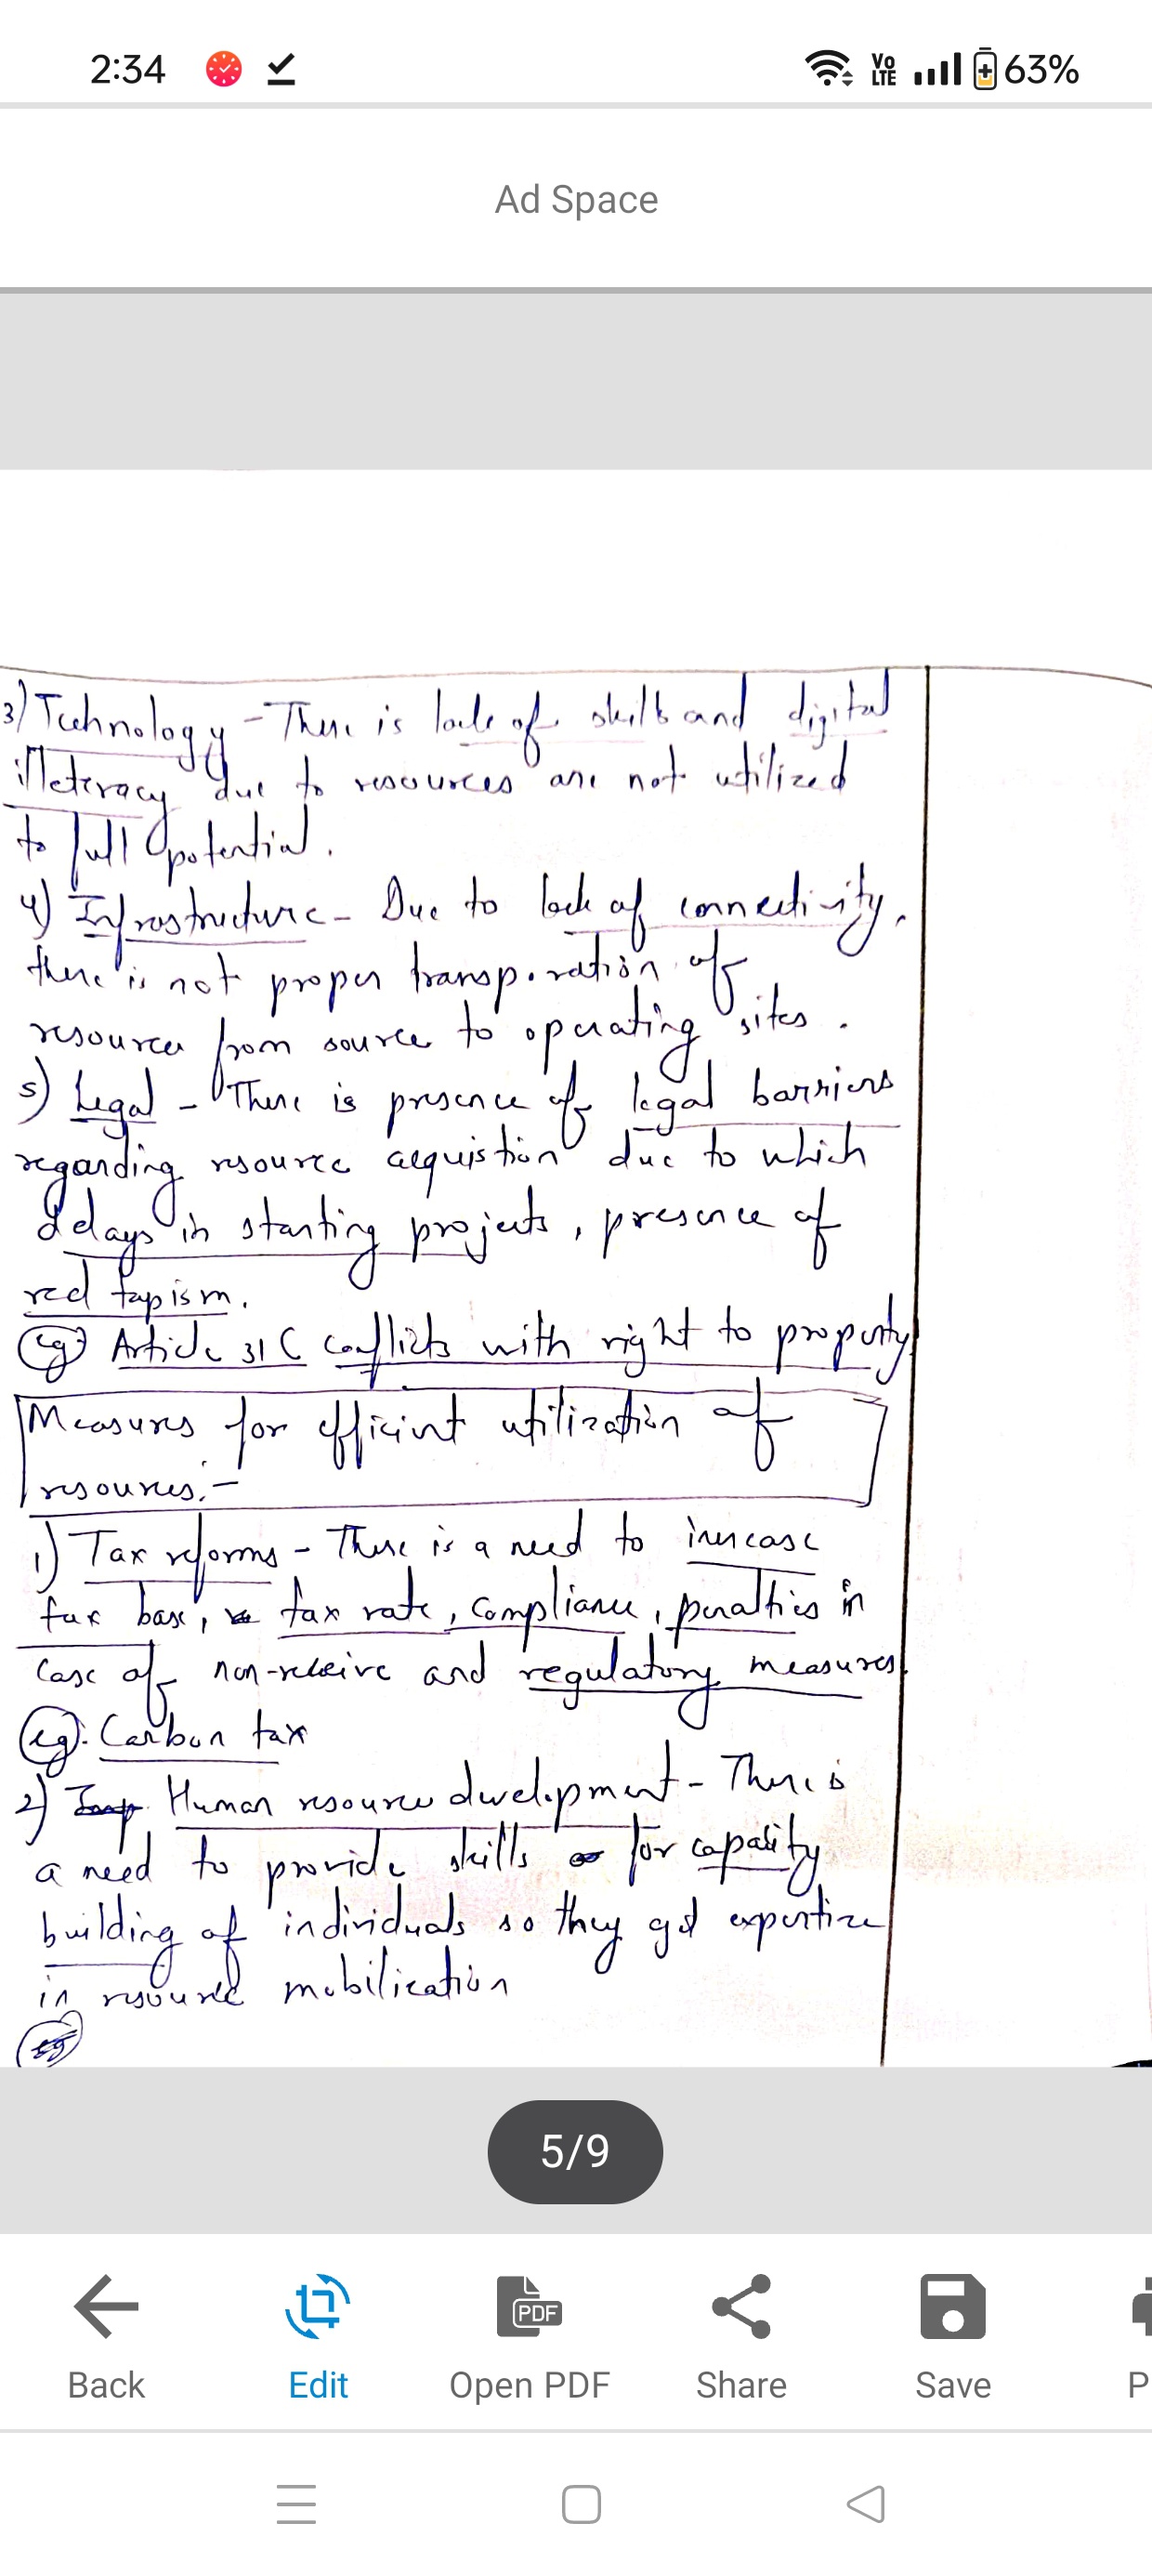 2:34
Vo LTE
63%
Ad Space
3) Technology - There is lack of skills and digital
illeteracy due to resources are not utilized
to full potential.
4) Infrastructure - Due to lack of connectivity,
there is not proper transporation of
resources from source to operating sites.
5) Legal - There is presence of legal barriers
regarding resource acquistion due to which
delays in starting projects, presence of
red tapism.
eg) Article 31 C conflicts with right to property
Measures for efficint utilization of
resources:-
1) Tax reforms - There is a need to increase
tax base, tax rate, compliance, penalties in
case of and regulatory measures.
eg: Carbon tax
2) Human resource development - There is
a need to provide skills for capacity
building of individuals so they get expertize
in resource mobilization
eg
5/9
Back
Edit
PDF
Open PDF
Share
Save
P